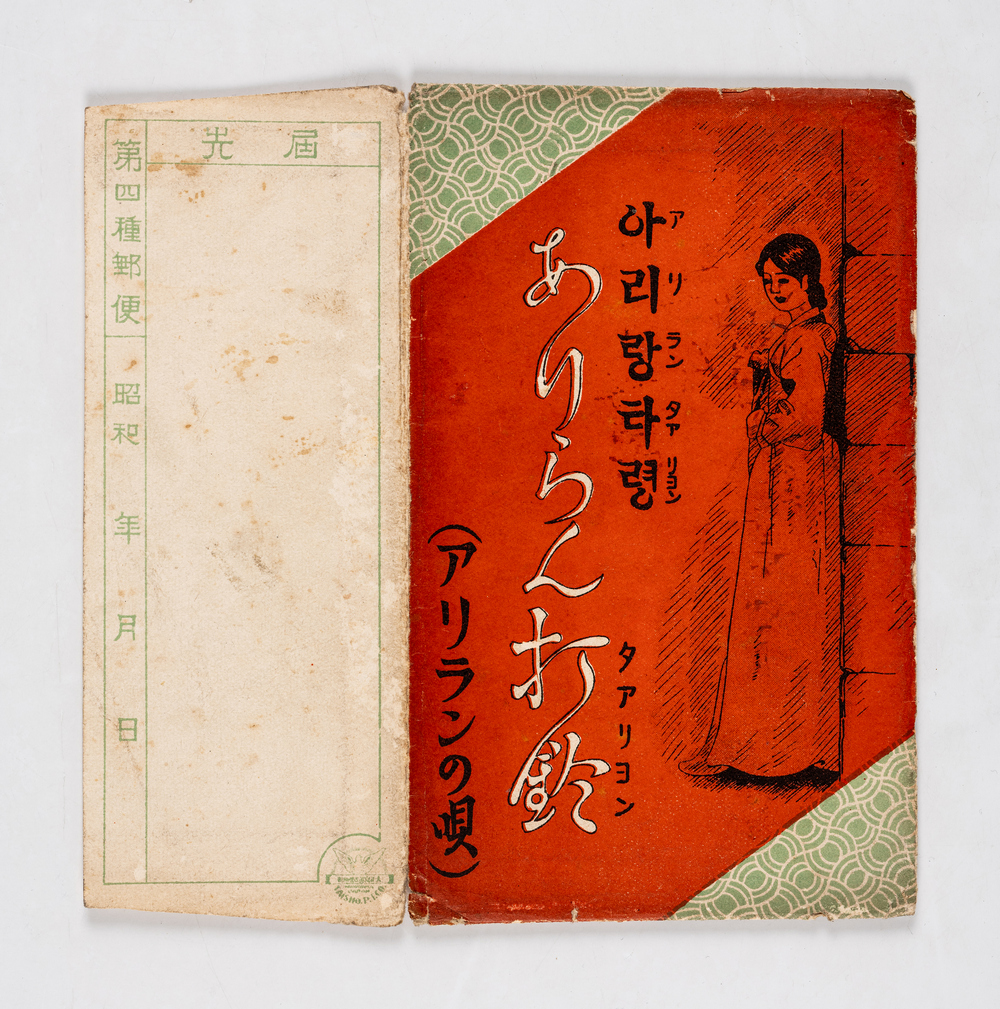 아리랑타령
アリランタアリヨン
ありらん打鈴
タアリヨン
(アリランの唄)
届先
第四種郵便
昭和 年 月 日